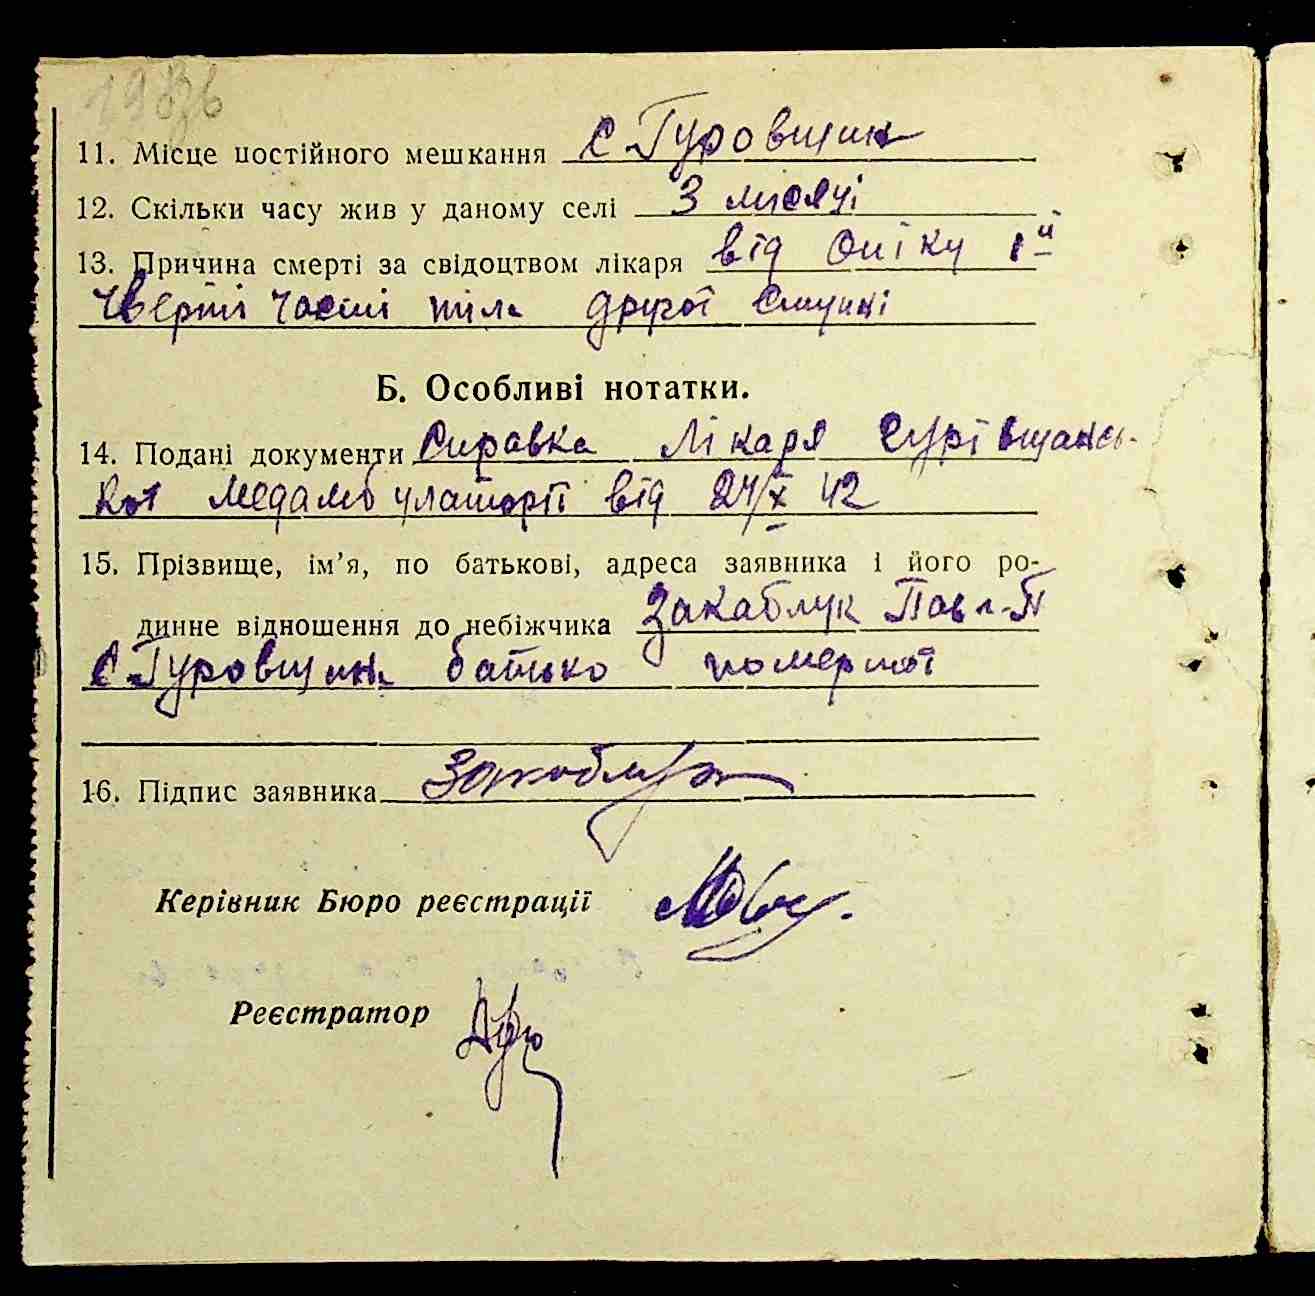 1936
11. Місце постійного мешкання с. Гуровщин
12. Скільки часу жив у даному селі 3 місяці
13. Причина смерті за свідоцтвом лікаря від опіку 1й
чверті часті тіла другої ступні
Б. Особливі нотатки.
14. Подані документи Справка лікаря Гурівщансь-
кої медамбулаторії від 24/X 42
15. Прізвище, ім’я, по батькові, адреса заявника і його ро-
динне відношення до небіжчика Закаблук Павл. П
с. Гуровщин. батько помершої
16. Підпис заявника Закаблук
Керівник Бюро реєстрації
Реєстратор